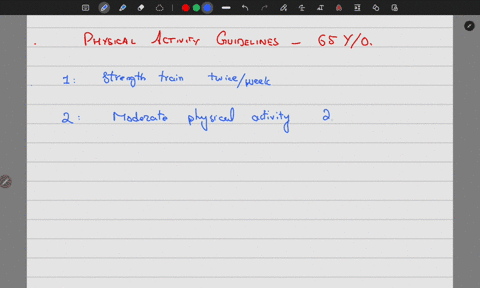 PHYSICAL ACTIVITY GUIDELINES - 65 Y/O.
1: Strength train twice/week
2: Moderate physical activity 2